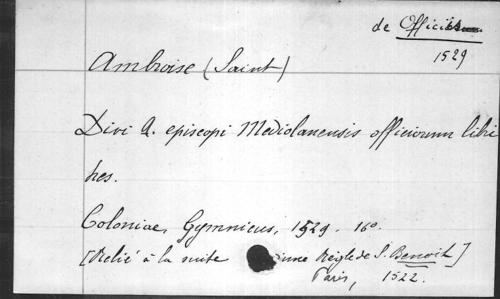 de Officiis
1529
Ambroise (Saint)
Divi A. episcopi Mediolanensis officiorum libri
tres.
Coloniae, Gymnicus, 1529. 16o.
[Relié à la suite d'une Règle de S. Benoit]
Paris, 1522.